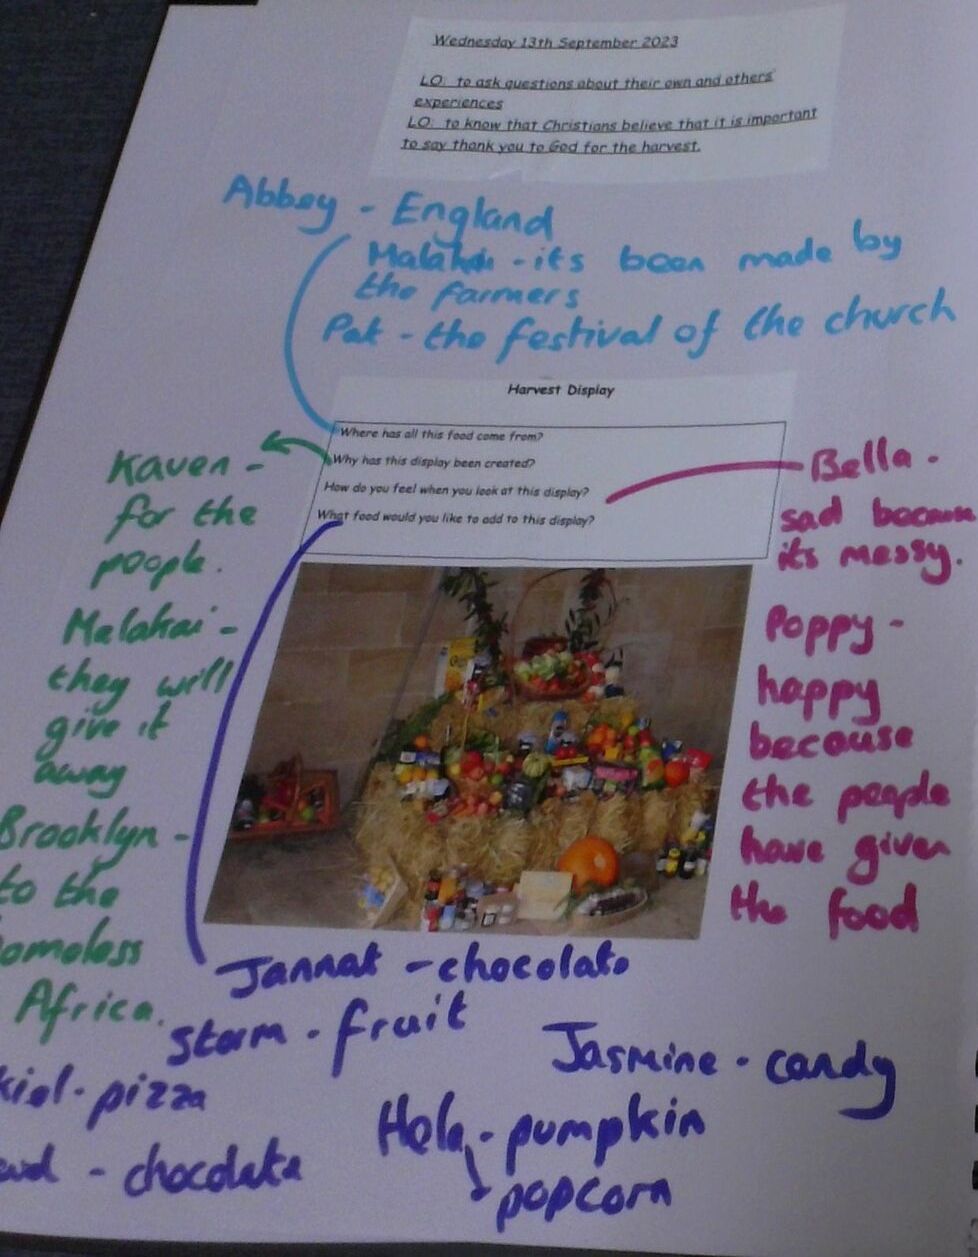 Wednesday 13th September 2023
LO: to ask questions about their own and others'
experiences
LO: to know that Christians believe that it is important
to say thank you to God for the harvest.
Abbey - England
Malakai - its been made by
the farmers
Pat - the festival of the church
Harvest Display
Where has all this food come from?
Why has this display been created?
How do you feel when you look at this display?
What food would you like to add to this display?
Kaven -
for the
people.
Malakai -
they will
give it
away
Brooklyn -
to the
homeless
Africa.
Bella -
sad because
its messy.
Poppy -
happy
because
the people
have given
the food
Jannat - chocolate
Storm - fruit
Jasmine - candy
pizza
pumpkin
popcorn
chocolate